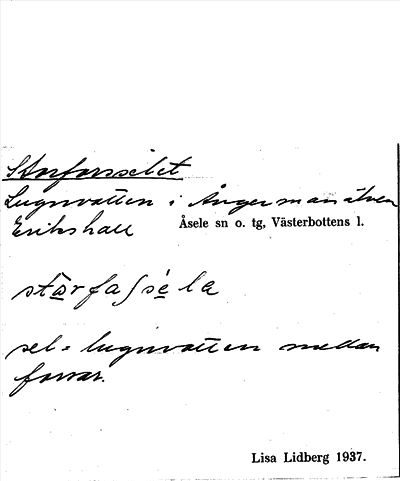 Storforsselet
Lugnvatten i Ångermanälven
Erikshall
Åsele sn o. tg, Västerbottens l.
stårfaʃséla
sel = lugnvatten mellan
forsar.
Lisa Lidberg 1937.